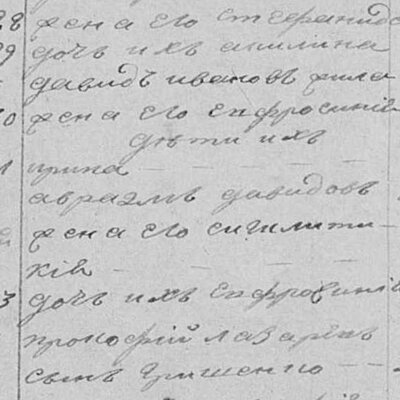 28 жена его стефанида
29 дочь ихъ акилина
давидъ ивановъ
30 жена его ефросинія
дѣти ихъ
ирина
авраамъ давидовъ
жена его
кія
3 дочь ихъ ефросинія
прокофій лазаревъ
сынъ грищенко